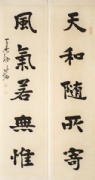 天和隨所寄
風氣若無惟